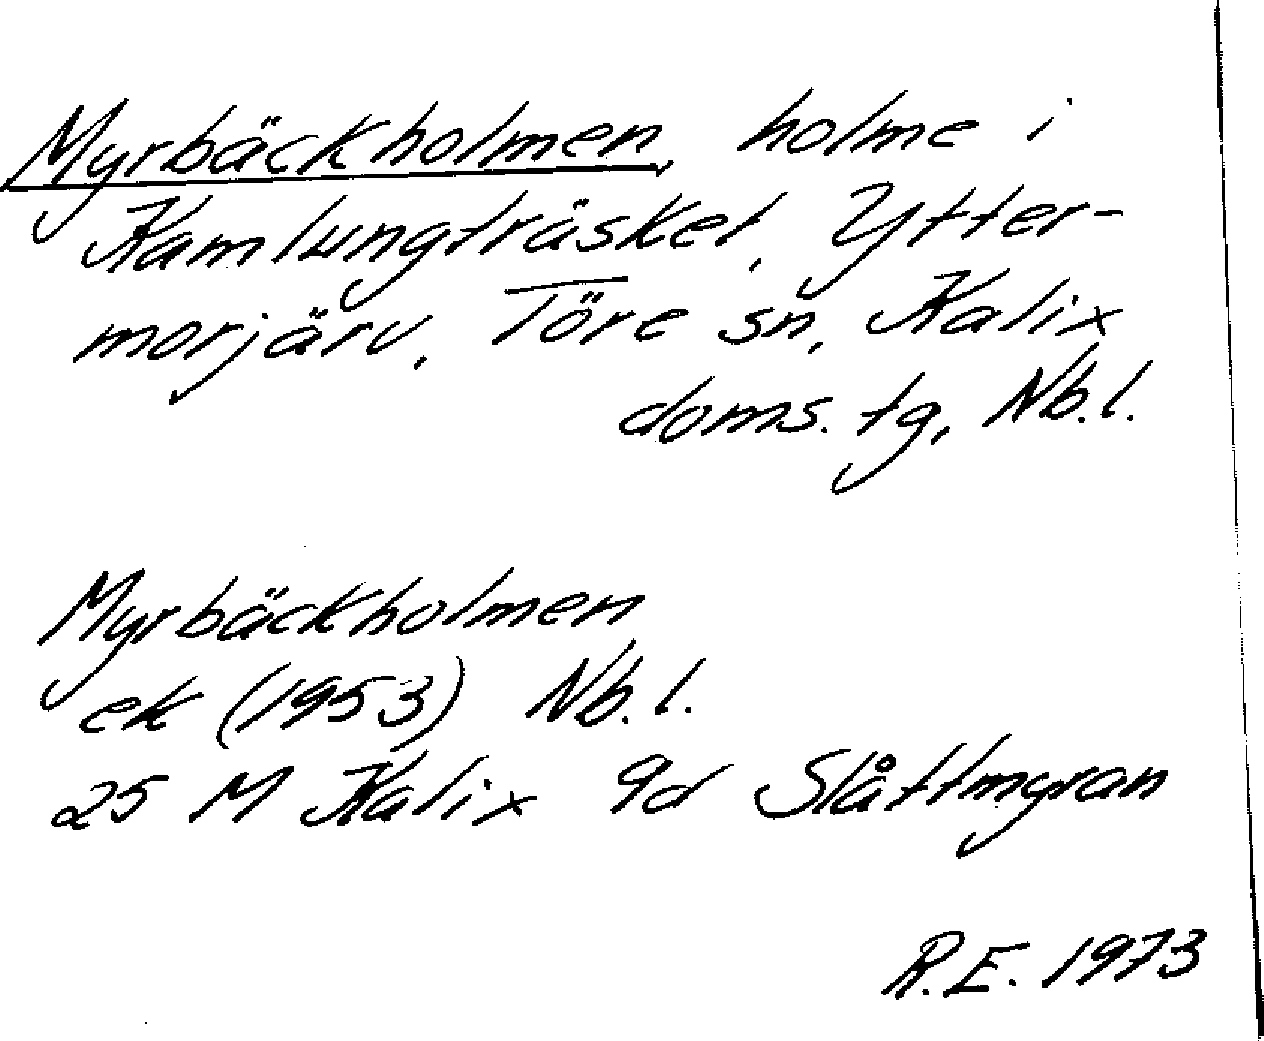 Myrbäckholmen, holme i
Kamlungträsket, Ytter-
morjärv, Töre sn, Kalix
doms. tg, Nb.l.
Myrbäckholmen
ek (1953) Nb.l.
25 M Kalix 9d Slåttmyran
R.E. 1973